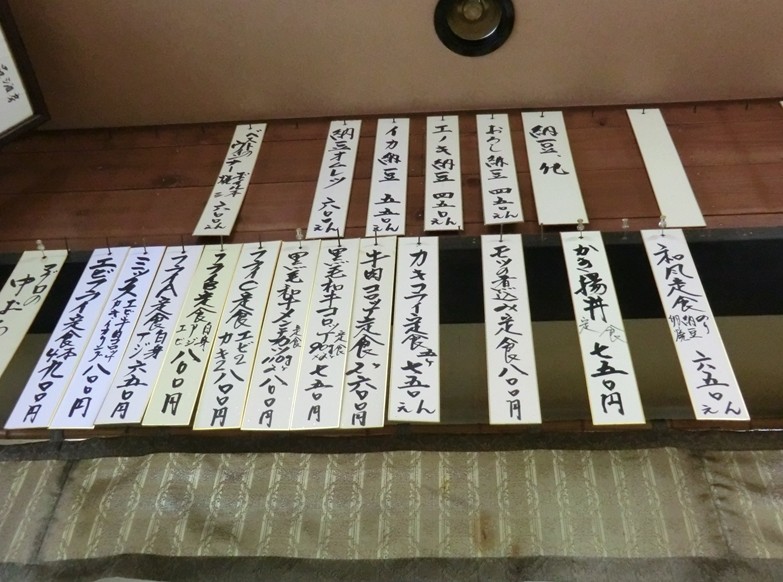 納豆、他
おろし納豆 四五〇えん
エノキ納豆 四五〇えん
イカ納豆 五五〇えん
納豆オムレツ 六〇〇えん
和風定食 のり 納豆 六五〇えん
かき揚丼 定食 七五〇円
モツ煮込み定食 八〇〇円
カキフライ定食 五ケ 七五〇えん
牛肉コロッケ定食 二ケ 六〇〇円
黒毛和牛コロッケ 定食 七五〇円
黒毛和牛メンチカツ 定食 八〇〇円
フライC定食 エビ2 カキ2 八〇〇円
フライB定食 白身 アジ エビ 八〇〇円
フライA定食 白身 エビ 八〇〇円
ミックス 六五〇円
エビフライ定食 九〇〇円
マグロの中おち